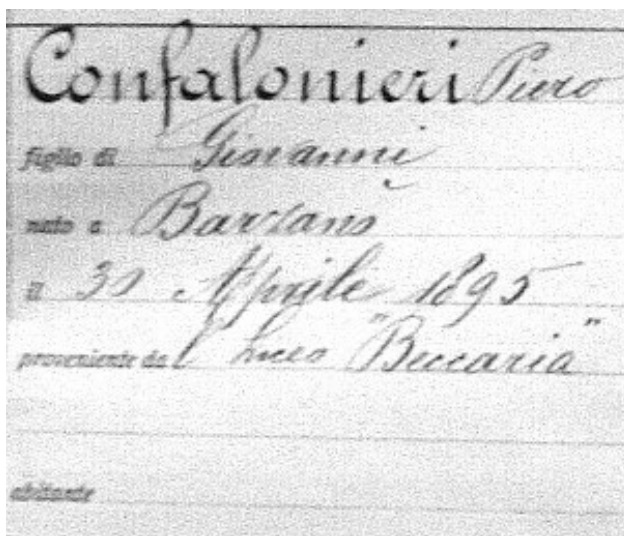 Confalonieri Piero
figlio di Giovanni
nato a Barzanò
il 30 Aprile 1895
proveniente dal Liceo "Beccaria"
abitante